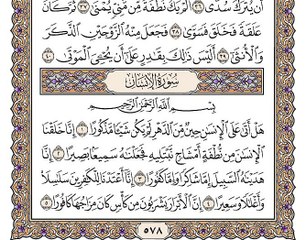 أَن يُتْرَكَ سُدًى ٣٦ أَلَمْ يَكُ نُطْفَةً مِّن مَّنِيٍّ يُمْنَىٰ ٣٧ ثُمَّ كَانَ
عَلَقَةً فَخَلَقَ فَسَوَّىٰ ٣٨ فَجَعَلَ مِنْهُ الزَّوْجَيْنِ الذَّكَرَ
وَالْأُنثَىٰ ٣٩ أَلَيْسَ ذَٰلِكَ بِقَادِرٍ عَلَىٰ أَن يُحْيِيَ الْمَوْتَىٰ ٤٠
سُورَةُ الْإِنسَانِ
بِسْمِ اللَّهِ الرَّحْمَٰنِ الرَّحِيمِ
هَلْ أَتَىٰ عَلَى الْإِنسَانِ حِينٌ مِّنَ الدَّهْرِ لَمْ يَكُن شَيْئًا مَّذْكُورًا ١ إِنَّا خَلَقْنَا
الْإِنسَانَ مِن نُّطْفَةٍ أَمْشَاجٍ نَّبْتَلِيهِ فَجَعَلْنَاهُ سَمِيعًا بَصِيرًا ٢ إِنَّا
هَدَيْنَاهُ السَّبِيلَ إِمَّا شَاكِرًا وَإِمَّا كَفُورًا ٣ إِنَّا أَعْتَدْنَا لِلْكَافِرِينَ سَلَاسِلَا
وَأَغْلَالًا وَسَعِيرًا ٤ إِنَّ الْأَبْرَارَ يَشْرَبُونَ مِن كَأْسٍ كَانَ مِزَاجُهَا كَافُورًا ٥
٥٧٨